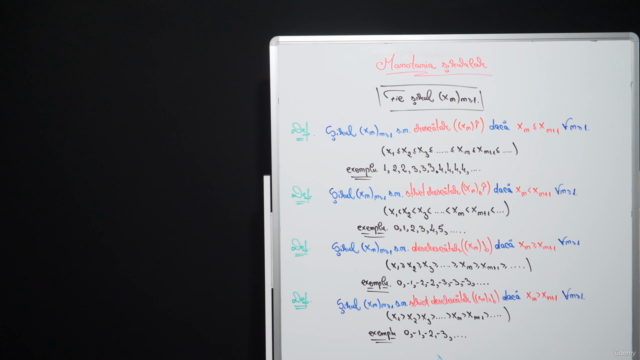 Monotonia şirurilor
Fie şirul (xn)n≥1.
Def. Şirul (xn)n≥1 s.n. crescător ((xn)↑) dacă xn ≤ xn+1 ∀n≥1.
(x1 ≤ x2 ≤ x3 ≤ .... ≤ xn ≤ xn+1 ≤ ....)
exemplu 1, 2, 2, 3, 3, 3, 4, 4, 4, 4, ...
Def. Şirul (xn)n≥1 s.n. strict crescător ((xn)s↑) dacă xn < xn+1 ∀n≥1.
(x1 < x2 < x3 < .... < xn < xn+1 < ...)
exemplu. 0, 1, 2, 3, 4, 5, ....
Def. Şirul (xn)n≥1 s.n. descrescător ((xn)↓) dacă xn ≥ xn+1 ∀n≥1
(x1 ≥ x2 ≥ x3 ≥ .... ≥ xn ≥ xn+1 ≥ ....)
exemplu. 0, -1, -2, -2, -3, -3, -3, ...
Def. Şirul (xn)n≥1 s.n. strict descrescător ((xn)s↓) dacă xn > xn+1 ∀n≥1.
(x1 > x2 > x3 > .... > xn > xn+1 > ....)
exemplu 0, -1, -2, -3, ....
Udemy